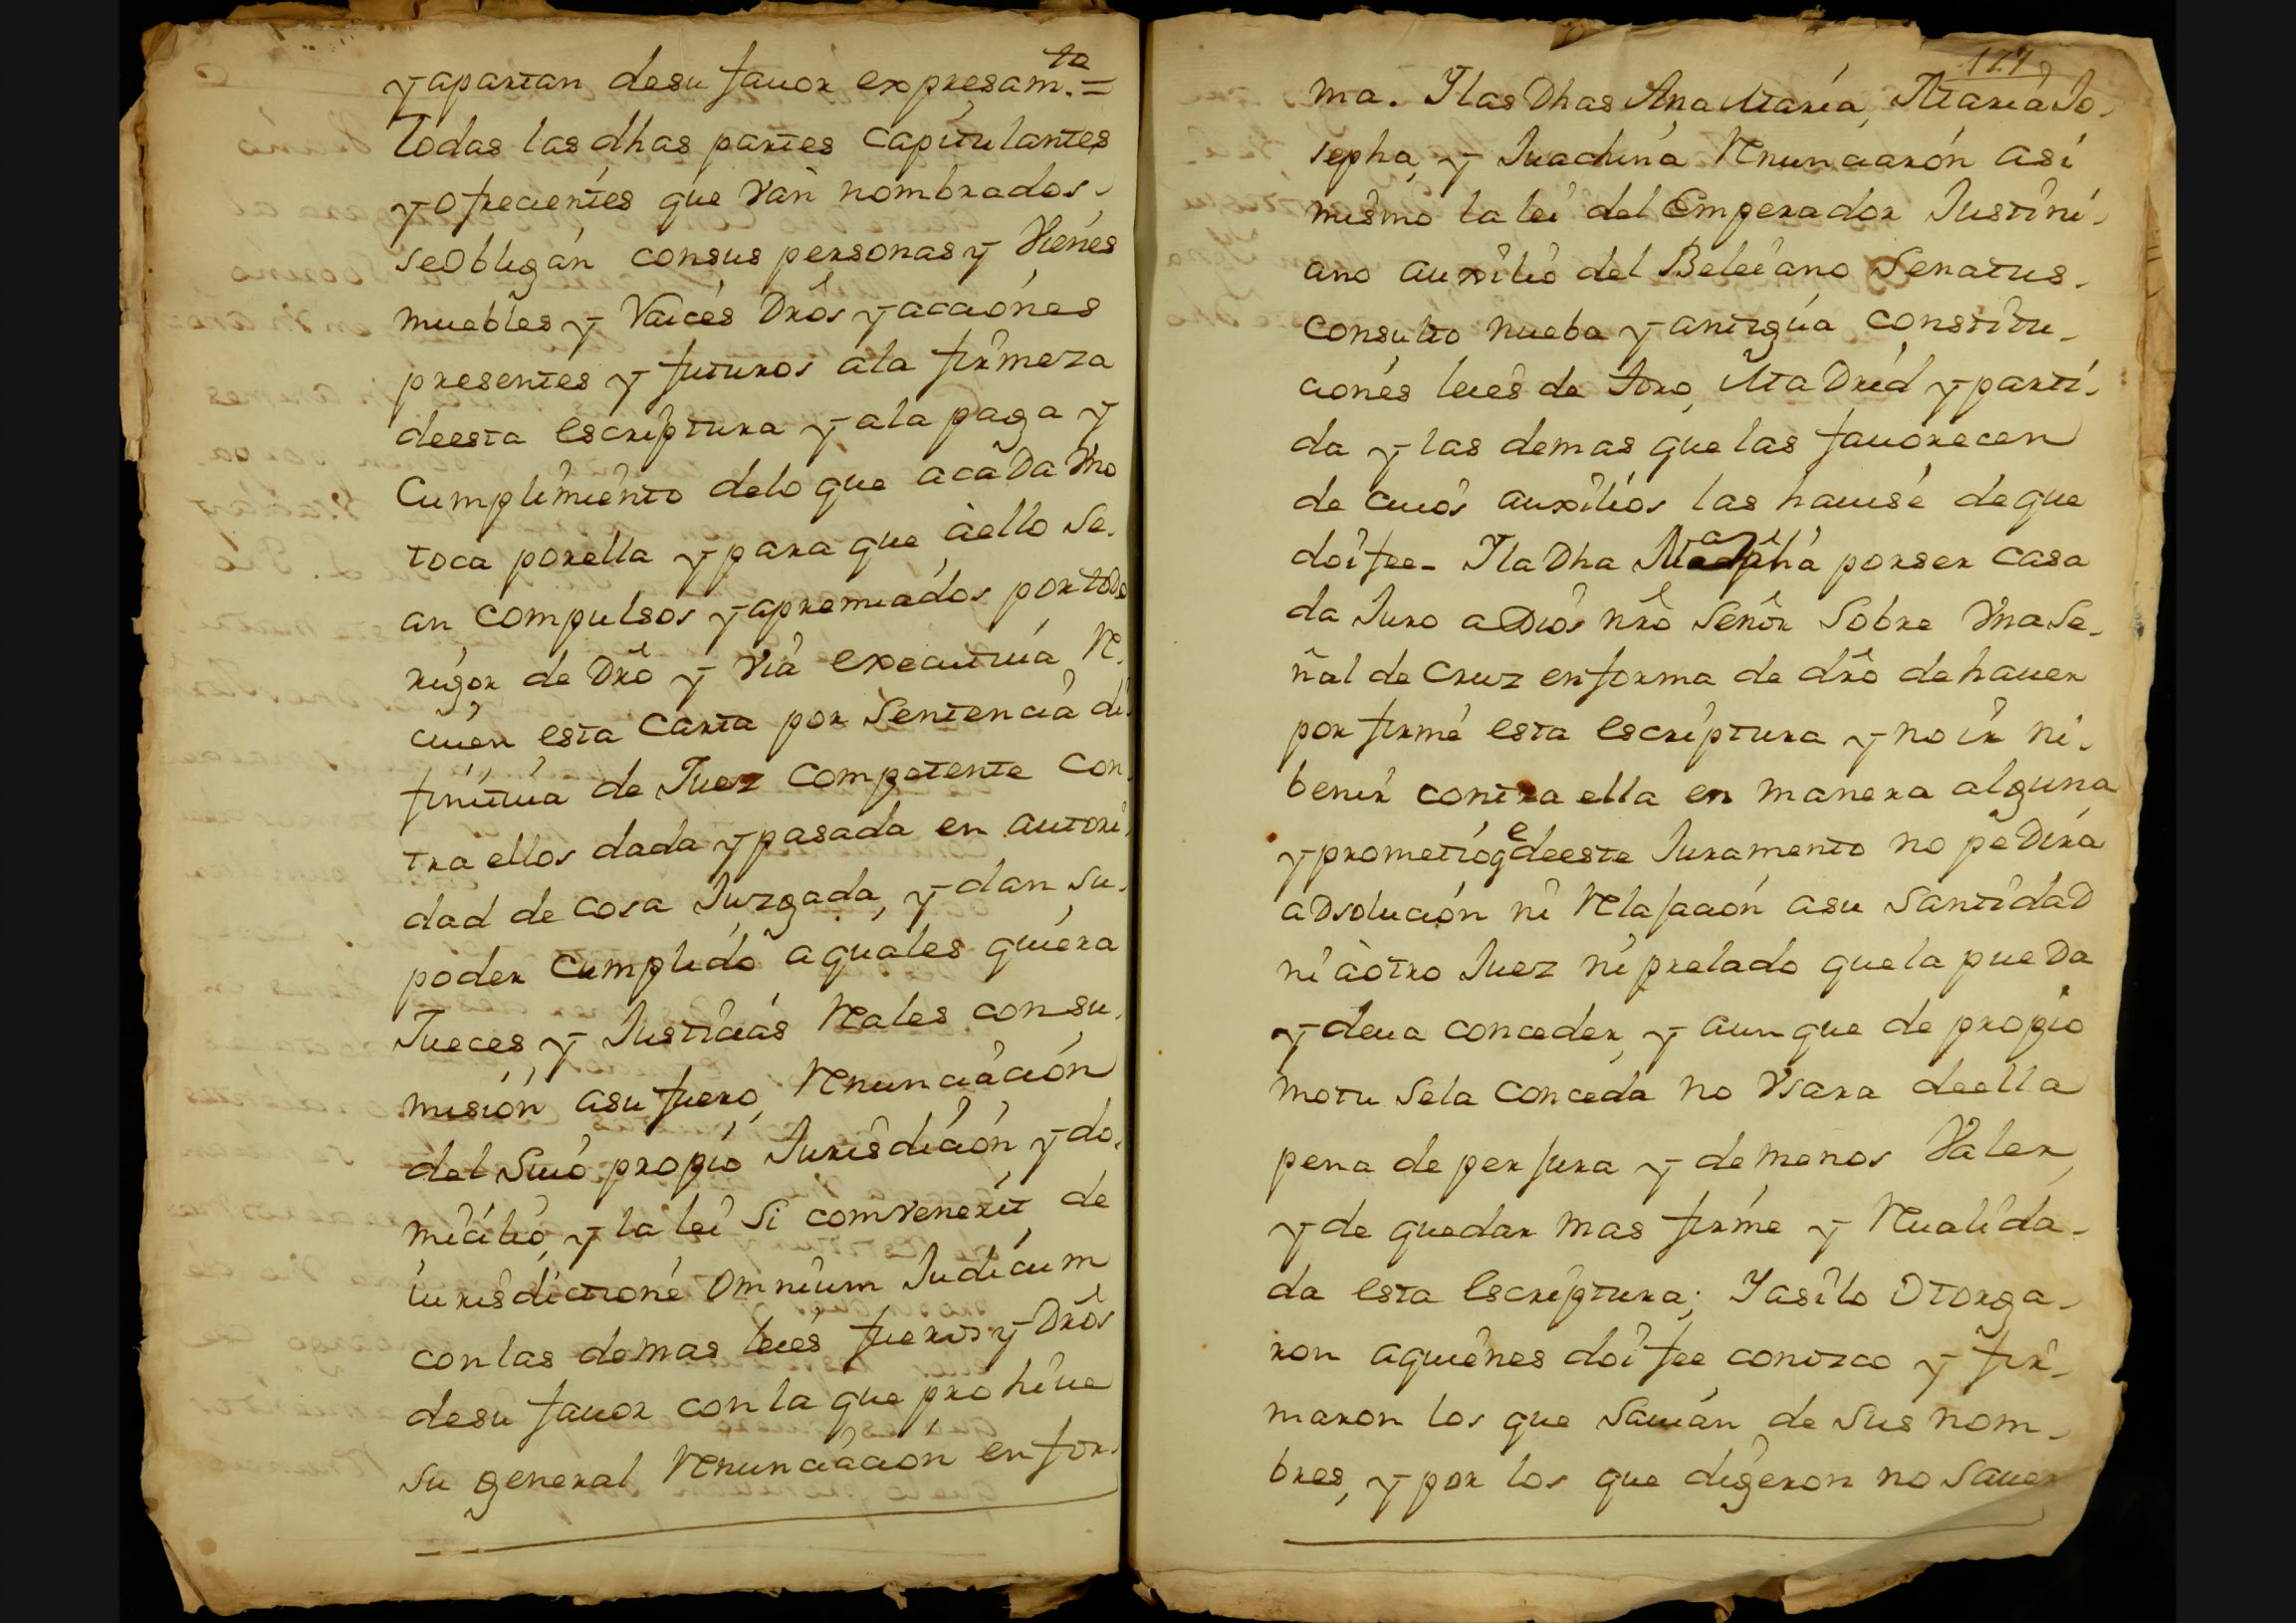 y apartan desu fauor expresam.te =
todas las dhas partes capitulantes
y ofrecientes que van nombrados.
se Obligan consus personas y Vienes
muebles y Raices Dros y acciones
presentes y futuros ala firmeza
deesta escriptura y ala paga y
Cumplimiento delo que acaDa Vno
toca porella y para que aello Se.
an compulsos y apremiados por todo
rigor de Dro y Via executiua Re.
ciuen esta Carta por Sentencia di
finitiua de Juez Competente Con
tra ellos dada y pasada en autori.
dad de cosa Juzgada, y dan su.
poder Cumplido aquales quiera
Jueces y Justicias Reales consu.
mision asu fuero, Renunciacion
del Suio propio Jurisdicion y do.
micilio, y la lei Si comvenerit de
iurisdictione Omnium Judicum
con las demas leies fueros y Dros
desu fauor con la que prohiue
su general Renunciacion en for.
177
ma. Ylas Dhas Ana Maria, Maria Jo.
sepha, y Juachina Renunciaron asi
mismo la lei del Emperador Justini.
ano auxilio del Beleiano Senatus.
Consulto nueba y antigua constitu.
ciones leies de toro, MaDrid y parti.
da y las demas que las fauorecen
de cuios auxilios las hauisé de que
doi fee. Yla Dha por ser casa
da Juro a Dios nro Señor Sobre Vna Se.
ñal de Cruz en forma de dro de hauer
por firme esta escriptura y no ir ni.
benir contra ella en manera alguna
y prometio qe deeste Juramento no peDira
aDsolucion ni Relajacion asu SantidaD
ni aotro Juez ni prelado que la pueDa
y deua conceder, y aunque de propio
motu sela conceda no Vsara deella
pena de perjura y de menos Valer,
y de quedar mas firme y Rualida.
da esta Escriptura; Yasilo Otorga.
ron aquienes doi fee conozco y fir.
maron los que Sauian de Sus nom.
bres, y por los que digeron no Sauer